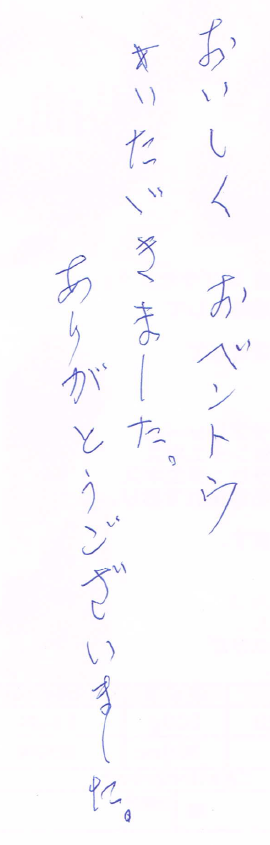 おいしく おベントウ
いただきました。
ありがとうございました。